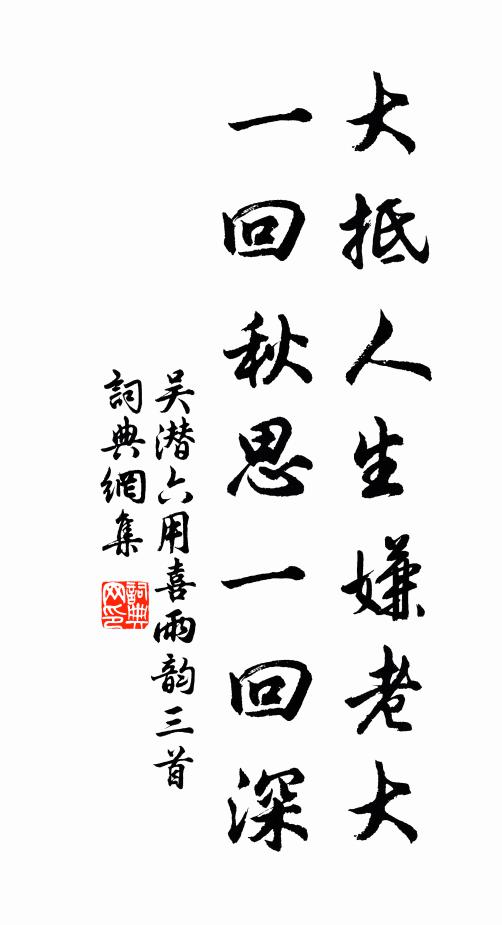 大抵人生嫌老大
一回秋思一回深
吴潜六用喜雨韵三首
詞典網集
詞典网印